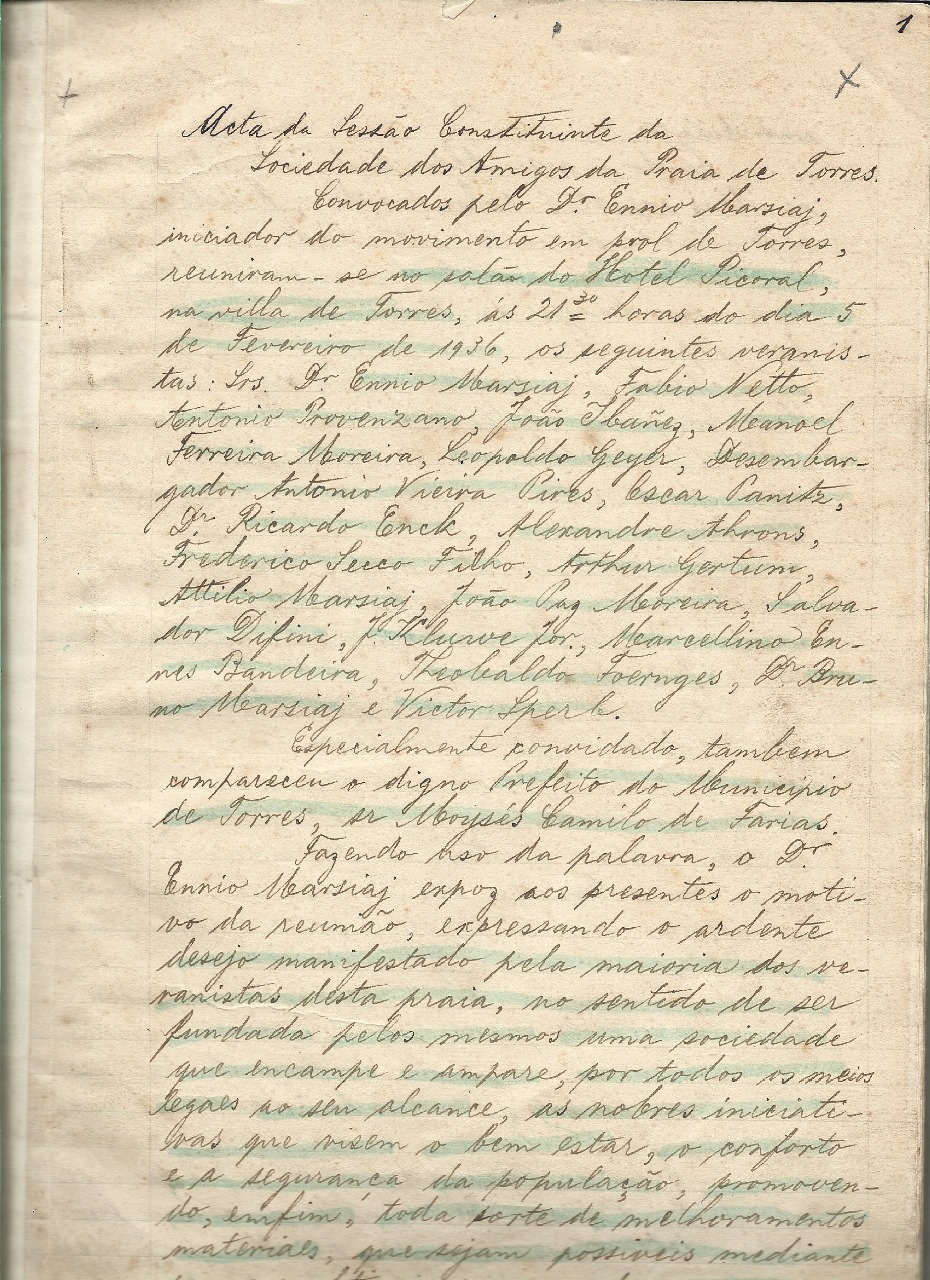 1
Acta da Sessão Constituinte da
Sociedade dos Amigos da Praia de Torres.
Convocados pelo Dr Ennio Marsiaj,
iniciador do movimento em prol de Torres,
reuniram-se no salão do Hotel Picoral,
na villa de Torres, ás 21 30 horas do dia 5
de Fevereiro de 1936, os seguintes veranis-
tas: Srs. Dr Ennio Marsiaj, Fabio Netto,
Antonio Provenzano, João Ibañez, Manoel
Ferreira Moreira, Leopoldo Geyer, Desembar-
gador Antonio Vieira Pires, Oscar Panitz,
Dr Ricardo Enck, Alexandre Ahrons,
Frederico Secco Filho, Arthur Gertum,
Attilio Marsiaj, João Paz Moreira, Salva-
dor Difini, J. Kluwe Jor., Marcellino En-
nes Bandeira, Theobaldo Foernges, Dr Bru-
no Marsiaj e Victor Sperb.
Especialmente convidado, tambem
compareceu o digno Prefeito do Municipio
de Torres, sr Moysés Camilo de Farias.
Fazendo uso da palavra, o Dr
Ennio Marsiaj expoz aos presentes o moti-
vo da reunião, expressando o ardente
desejo manifestado pela maioria dos ve-
ranistas desta praia, no sentido de ser
fundada pelos mesmos uma sociedade
que encampe e ampare, por todos os meios
legaes ao seu alcance, as nobres iniciati-
vas que visem o bem estar, o conforto
e a segurança da população, promoven-
do, emfim, toda sorte de melhoramentos
materiaes, que sejam possiveis mediante